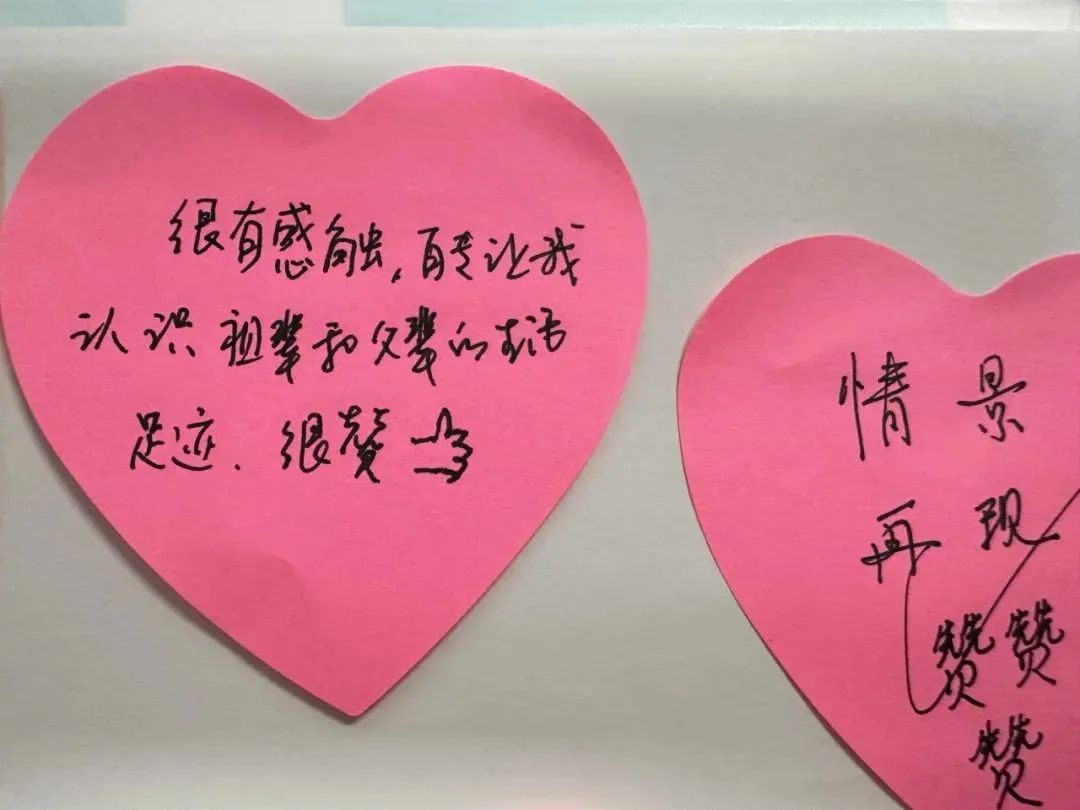 很有感触,百年让我
认识祖辈和父辈的生活
足迹.很赞
情景
再现
赞赞
赞